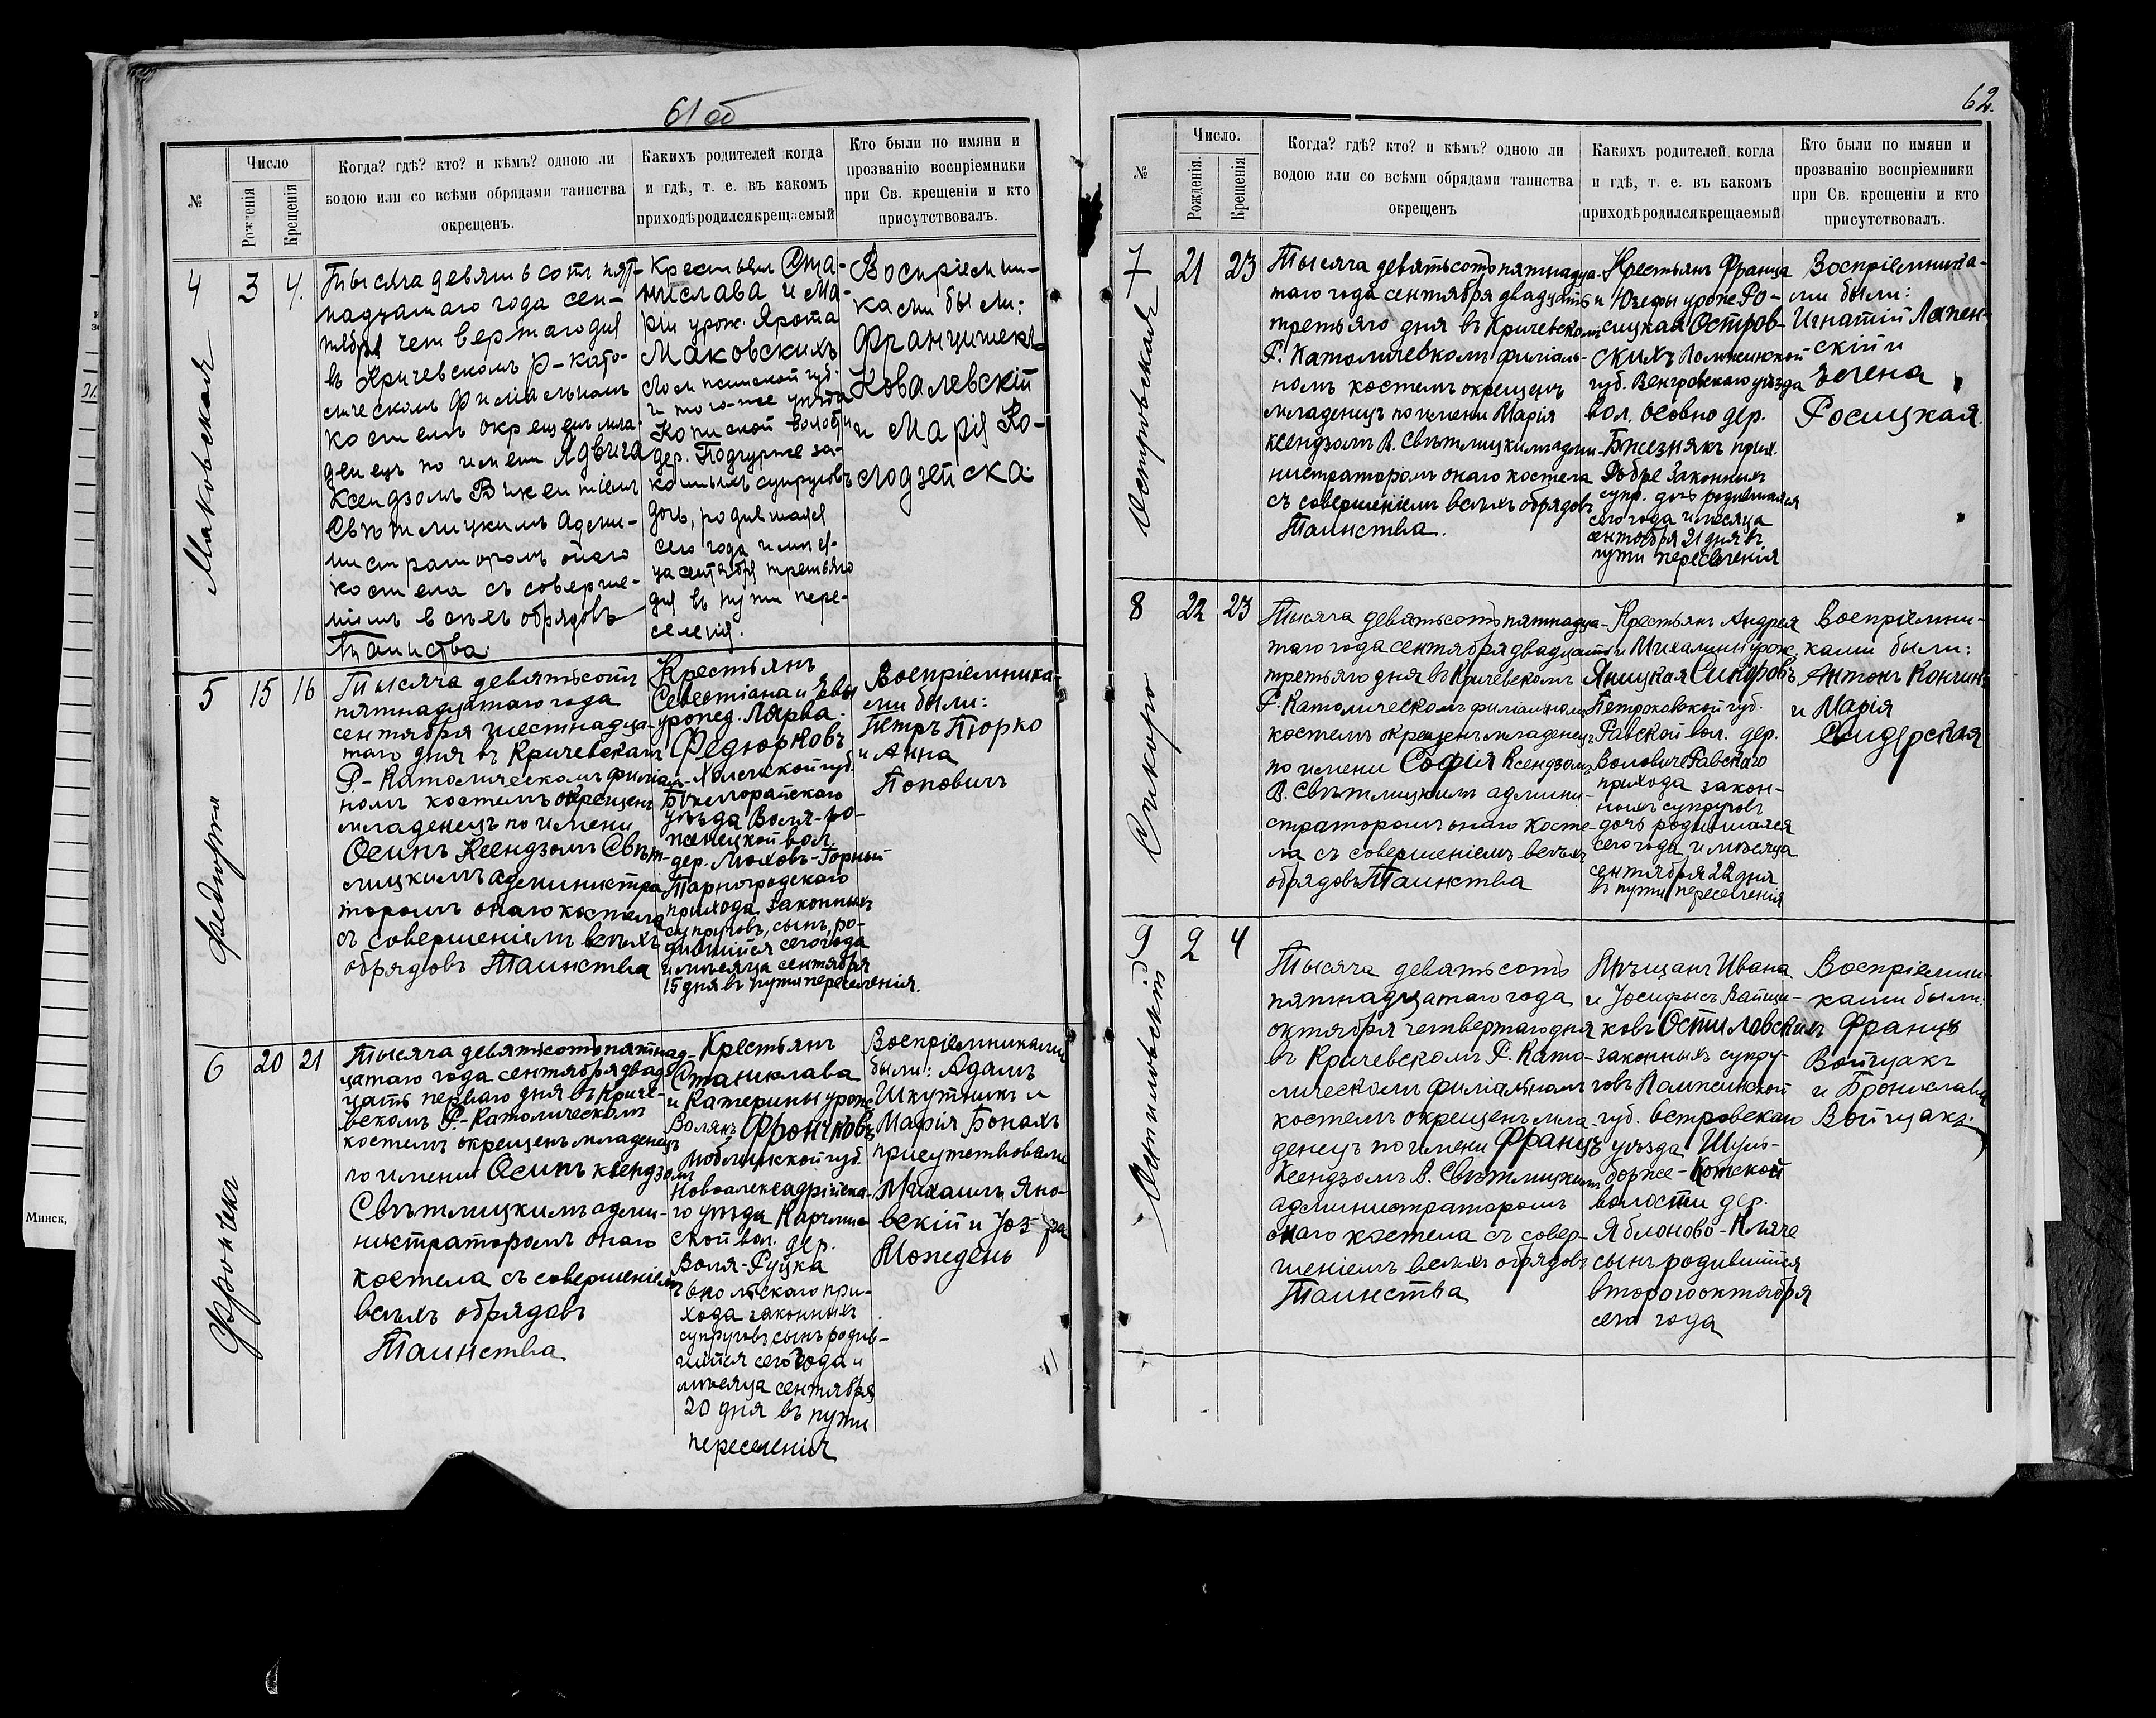 61 об
№
Число
Рожденія
Крещенія
Когда? гдѣ? кто? и кѣмъ? одною ли
водою или со всѣми обрядами таинства
окрещенъ.
Какихъ родителей когда
и гдѣ, т. е. въ какомъ
приходѣ родился крещаемый
Кто были по имяни и
прозванію воспріемники
при Св. крещеніи и кто
присутствовалъ.
4
Маковская
3
4.
Тысяча девятьсотъ пят-
надцатаго года сен-
тября четвертаго дня
въ Кричевскомъ Р-като-
лическомъ филіальномъ
костелѣ окрещенъ мла-
денецъ по имени Ядвига
Ксендзомъ Викентіемъ
Свѣтлицкимъ Адми-
нистраторомъ онаго
костела съ соверше-
ніемъ всѣхъ обрядовъ
Таинства.
Крестьян Ста-
нислава и Ма-
ріи урож. Ярота
Маковскихъ
Ломжинской губ.
и того-же уѣзда
волости
дер. Подгурже за-
конныхъ супруговъ
дочь, родившаяся
сего года и мѣся-
ца сентября третьяго
дня въ пути пере-
селенія.
Воспріемни-
ками были:
Францишекъ
Ковалевскій
и Марія Ко-
лодзейска.
5
Федюрка
15
16
Тысяча девятьсотъ
пятнадцатаго года
сентября шестнадца-
таго дня въ Кричевскомъ
Р.-Католическомъ филіал-
номъ костелѣ окрещенъ
младенецъ по имени
Осипъ Ксендзомъ Свѣт-
лицкимъ администра
торомъ онаго костела
съ совершеніемъ всѣхъ
обрядовъ Таинства
Крестьянъ
Севестіана и Евы
урожд. Ларва
Федюрковъ
Холмской губ.
Бѣлгорайскаго
уѣзда Воля-Ро-
жанецкой вол.
дер. Люховъ-Горный
Тарногродскаго
прихода законныхъ
супруговъ, сынъ, ро-
дившійся сего года
и мѣсяца сентября
15 дня въ пути переселенія.
Воспріемника-
ми были:
Петръ Пюрко
и Анна
Поповичъ
6
Фрончекъ
20
21
Тысяча девятьсотъ пятнад-
цатаго года сентября двад-
цать перваго дня въ Криче-
вскомъ Р.-Католическомъ
костелѣ окрещенъ младенецъ
по имени Осипъ ксендзомъ
Свѣтлицкимъ адми-
нистраторомъ онаго
костела съ совершеніемъ
всѣхъ обрядовъ
Таинства
Крестьянъ
Станислава
и Катерины урож.
Волякъ Фрончковъ
Люблинской губ.
Новоалександрійска-
го уѣзда Карчмис-
ской вол. дер.
Воля-Рудска
при-
хода законныхъ
супруговъ сынъ родив-
шійся сего года и
мѣсяца сентября
20 дня въ пути
переселенія
Воспріемниками
были: Адамъ
Шкутникъ и
Марія Бонахъ
присутствовали
Михаилъ Яно-
вскій и Юзефа
Можденъ
62.
№
Число.
Рожденія.
Крещенія
Когда? гдѣ? кто? и кѣмъ? одною ли
водою или со всѣми обрядами таинства
окрещенъ
Какихъ родителей когда
и гдѣ, т. е. въ какомъ
приходѣ родился крещаемый
Кто были по имяни и
прозванію воспріемники
при Св. крещеніи и кто
присутствовалъ.
7
Островская
21
23
Тысяча девятьсотъ пятнадца-
таго года сентября двадцать
третьяго дня въ Кричевскомъ
Р. Католическомъ филіаль-
номъ костелѣ окрещенъ
младенецъ по имени Марія
ксендзомъ В. Свѣтлицкимъ адми-
нистраторомъ онаго костела
съ совершеніемъ всѣхъ обрядовъ
Таинства.
Крестьянъ Франца
и Юзефы урож. Ро-
сицкая Остров-
скихъ Ломжинской
губ. Венгровскаго уѣзда
вол. Осовно дер.
Бжезнякъ прих.
Добре законныхъ
супр. дочь родившаяся
сего года и мѣсяца
сентября 21 дня въ
пути переселенія
Воспріемника-
ми были:
Игнатій Лапен-
скій и
Елена
Росицкая
8
Сикора
22
23
Тысяча девятьсотъ пятнадца-
таго года сентября двадцать
третьяго дня въ Кричевскомъ
Р. Католическомъ филіальномъ
костелѣ окрещенъ младенецъ
по имени Софія Ксендзомъ
В. Свѣтлицкимъ админи-
страторомъ онаго косте-
ла съ совершеніемъ всѣхъ
обрядовъ Таинства
Крестьянъ Андрея
и Михалины урож.
Яницкая Сикоровъ
Петроковской губ.
Равской вол. дер.
Воловиче Равскаго
прихода закон-
ныхъ супруговъ
дочь родившаяся
сего года и мѣсяца
сентября 22 дня
въ пути переселенія
Воспріемни-
ками были:
Антонъ
и Марія
Свидерская
9
Остиловскій
2
4
Тысяча девятьсотъ
пятнадцатаго года
октября четвертаго дня
въ Кричевскомъ Р. Като-
лическомъ филіальномъ
костелѣ окрещенъ мла-
денецъ по имени Францъ
Ксендзомъ В. Свѣтлицкимъ
администраторомъ
онаго костела съ совер-
шеніемъ всѣхъ обрядовъ
Таинства
Мѣщанъ Ивана
и Іосифы съ Вайци-
ковъ Остиловскихъ
законныхъ супру-
говъ Ломжинской
губ. Островскаго
уѣзда Шуль-
борже-Котской
волости дер.
Яблоново-Кляче
сынъ родившійся
второго октября
сего года
Воспріемни-
ками были:
Францъ
Войцакъ
и Бронислава
Войцакъ.
Минск,